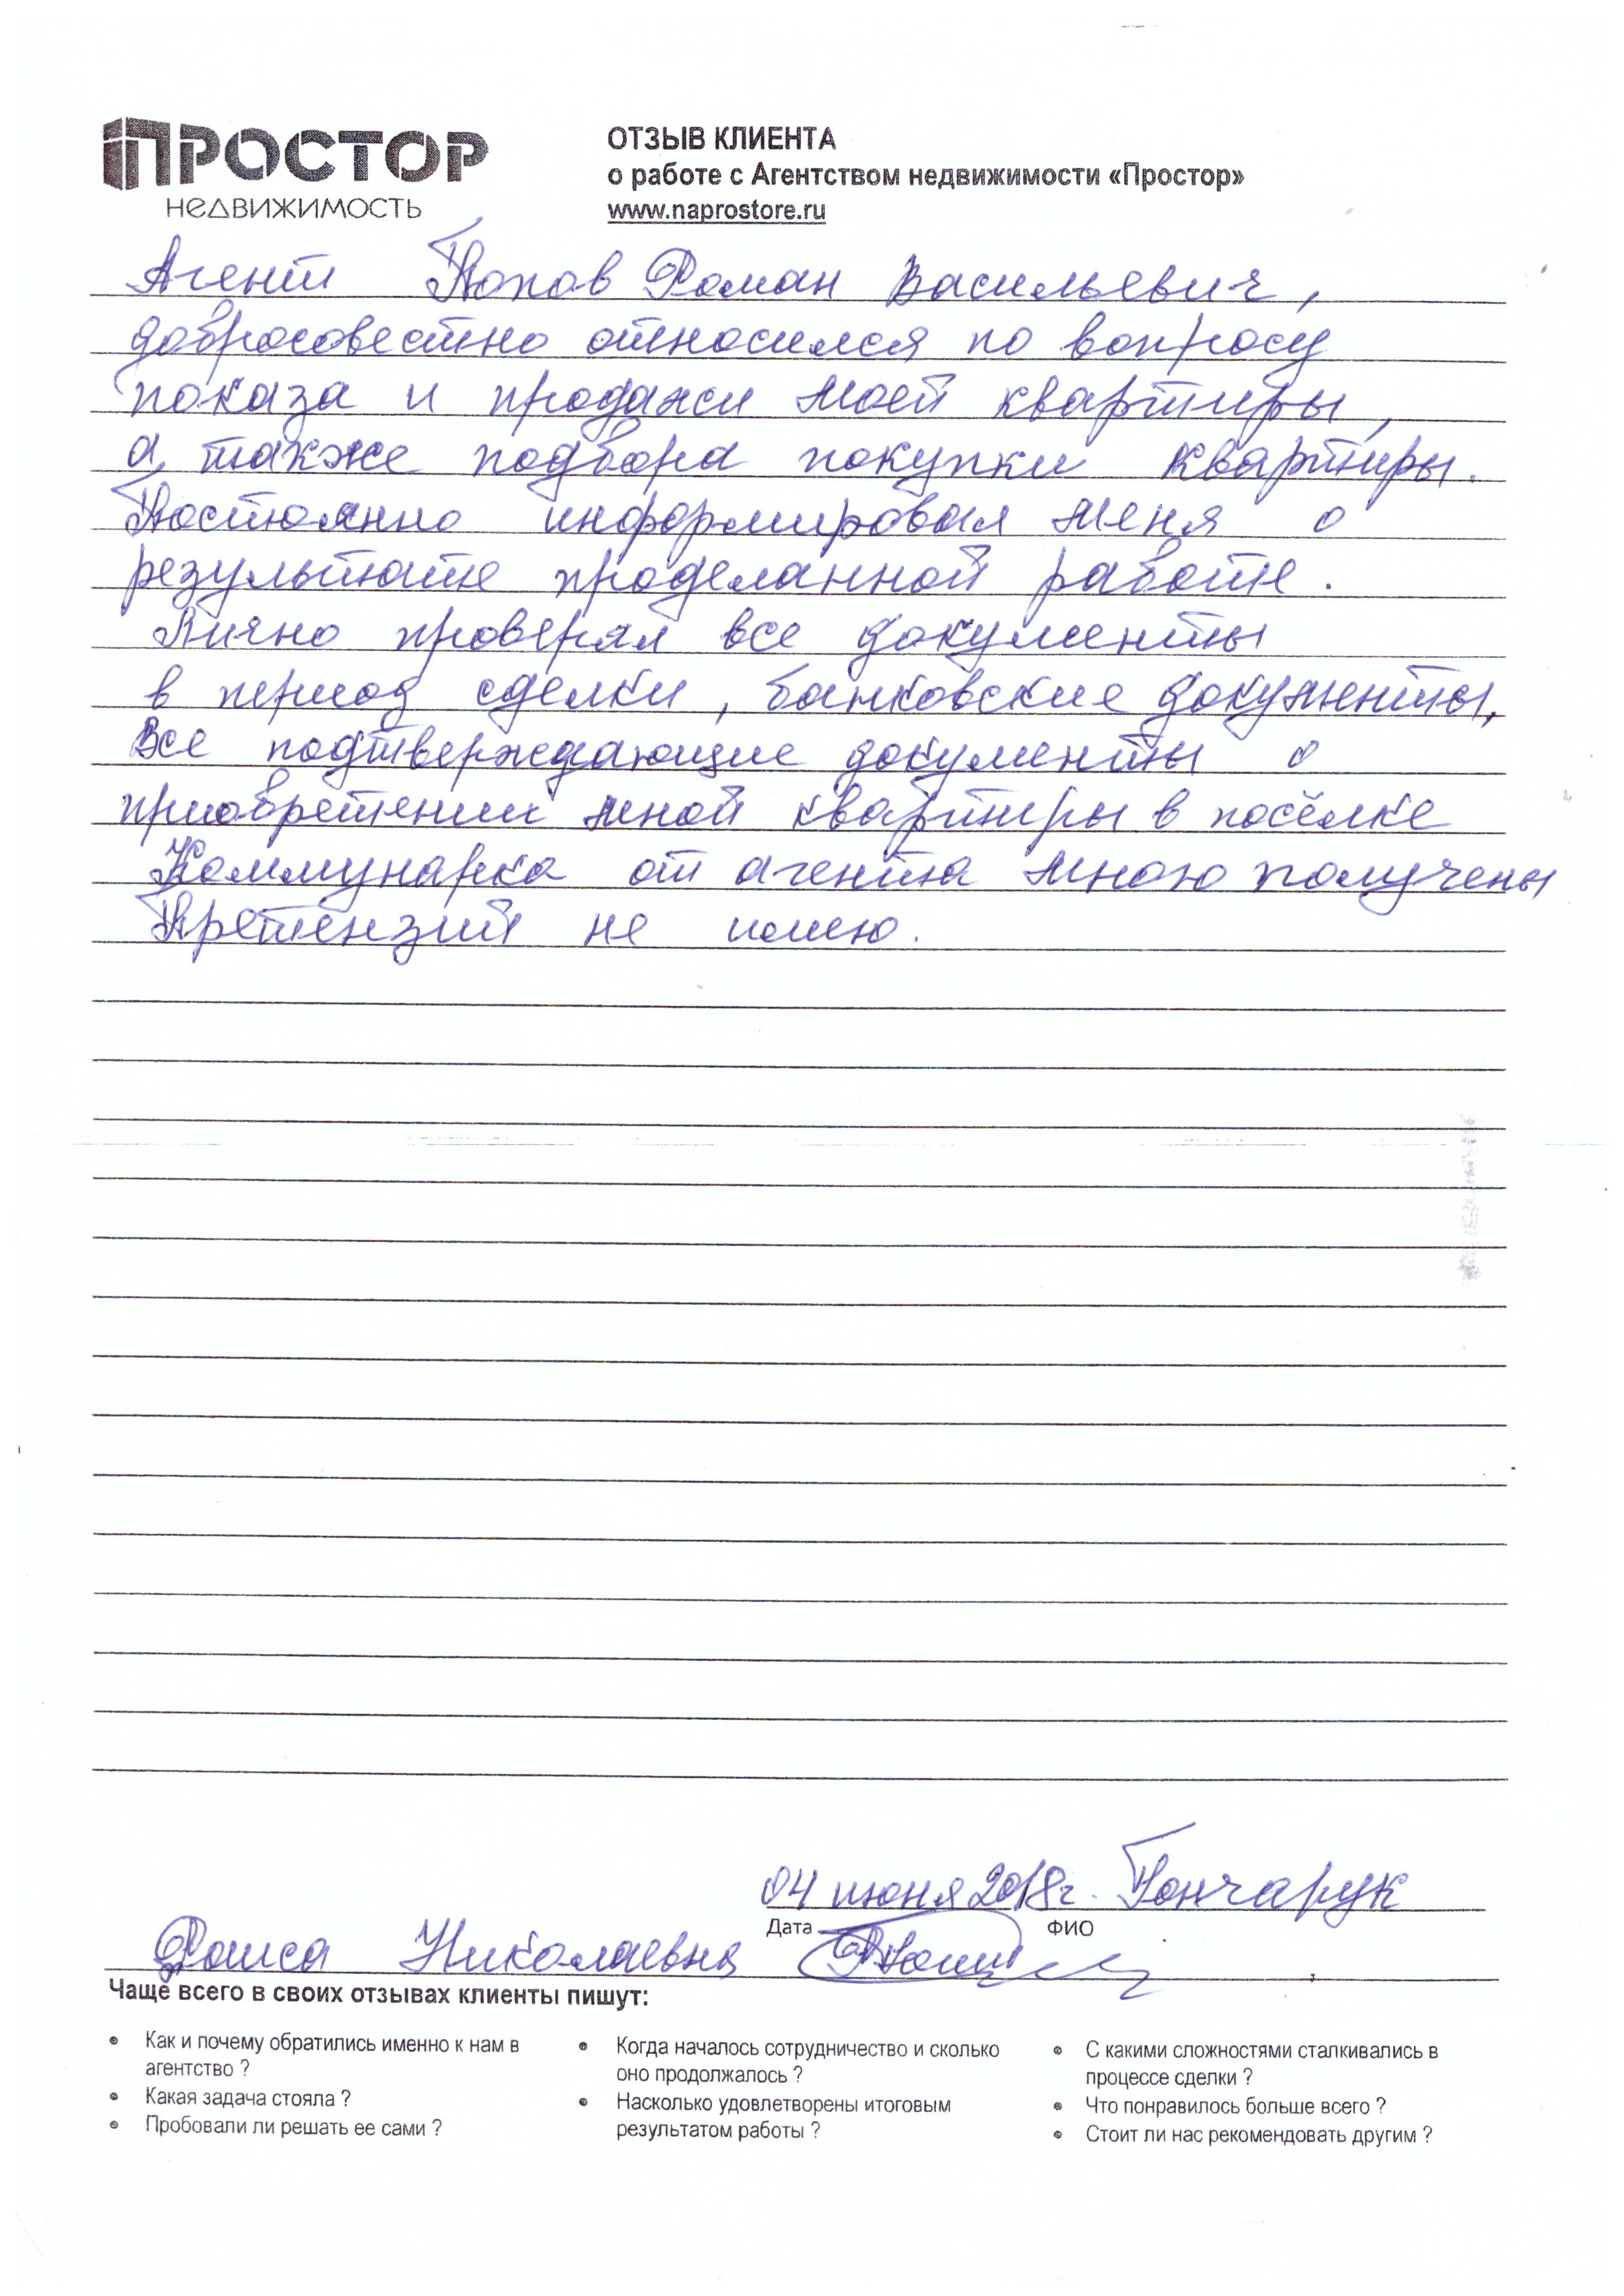 ПРОСТОР
НЕДВИЖИМОСТЬ
ОТЗЫВ КЛИЕНТА
о работе с Агентством недвижимости «Простор»
www.naprostore.ru
Агент Попов Роман Васильевич,
добросовестно относился по вопросу
показа и продажи моей квартиры,
а также подбора покупки квартиры.
Постоянно информировал меня о
результате проделанной работе.
Лично проверял все документы
в период сделки, банковские документы,
Все подтверждающие документы о
приобретении мной квартиры в посёлке
Коммунарка от агента мною получены
Претензий не имею.
04 июня 2018г. Гончарук
Дата ФИО
Раиса Николаевна
Чаще всего в своих отзывах клиенты пишут:
• Как и почему обратились именно к нам в
агентство ?
• Какая задача стояла ?
• Пробовали ли решать ее сами ?
• Когда началось сотрудничество и сколько
оно продолжалось ?
• Насколько удовлетворены итоговым
результатом работы ?
• С какими сложностями сталкивались в
процессе сделки ?
• Что понравилось больше всего ?
• Стоит ли нас рекомендовать другим ?